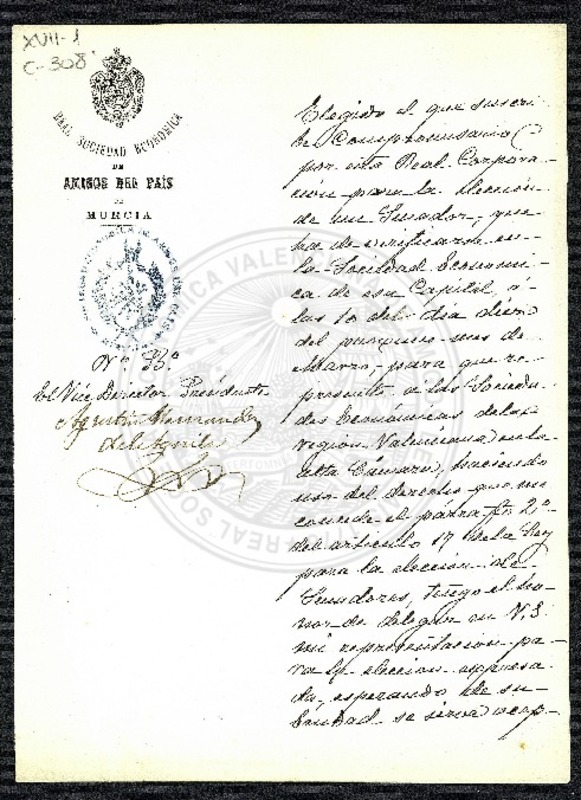 XVII-1
C-308
REAL SOCIEDAD ECONÓMICA
DE
AMIGOS DEL PAÍS
DE
MURCIA
Nº 33º
El Vice Director Presidente
Agustin Hernandez
del Aguila
Elegido el que suscri-
be Compromisario
por esta Real Corpora-
ción para la elección
de un Senador, que
ha de verificarse en
la Sociedad Economi-
ca de esa Capital, á
las 10 del dia diez
del proximo mes de
Marzo, para que re-
presente á las Socieda-
des Económicas de la
region Valenciana en la
alta Cámara, haciendo
uso del derecho que me
concede el párrafo 2º
del articulo 17 de la Ley
para la elección de
Senadores, tengo el ho-
nor de delegar en V.S.
mi representacion pa-
ra la eleccion expresa-
da, esperando de su
bondad se sirva acep-